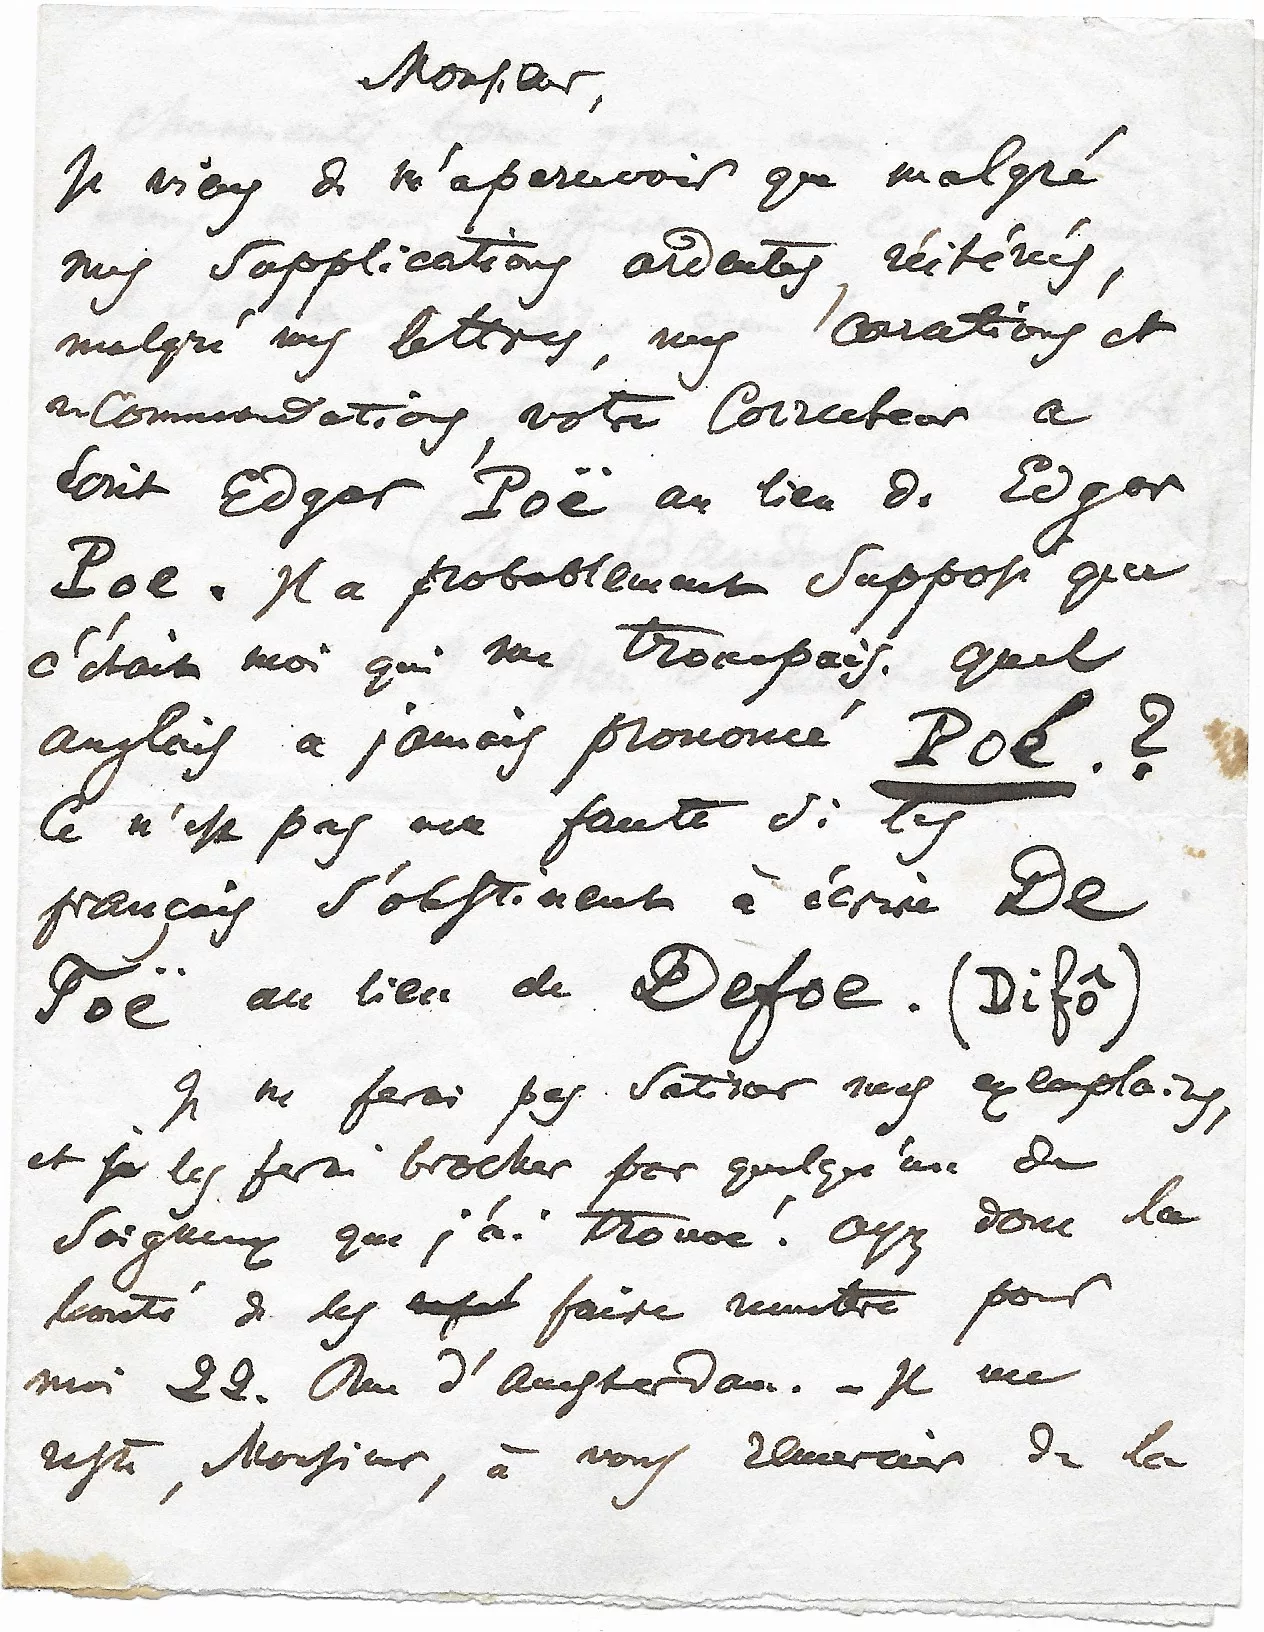 Monsieur,
Je viens de m'apercevoir que malgré
mes supplications ardentes, réitérées,
malgré mes lettres, mes corrections et
recommandations, votre correcteur a
écrit Edgar Poë au lieu de Edgar
Poe. Il a probablement supposé que
c'était moi qui me trompais. quel
anglais a jamais prononcé Poë. ?
Ce n'est pas ma faute si les
français s'obstinent à écrire De
Foë au lieu de Defoe. (Difô)
Je ne ferai pas satiner mes exemplaires,
et je les ferai brocher par quelqu'un de
soigneux que j'ai trouvé. ayez donc la
bonté de les faire remettre pour
moi 22. Rue d'Amsterdam. - Il me
reste, Monsieur, à vous remercier de la